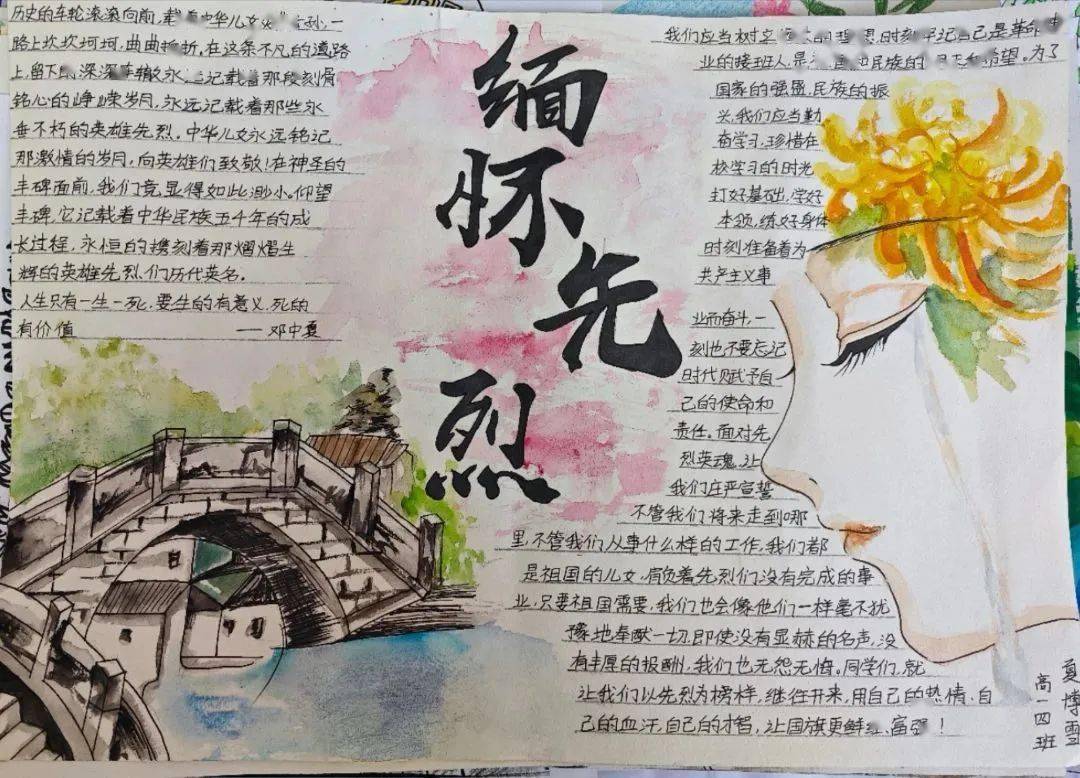 历史的车轮滚滚向前,载
中华儿女
一
路上坎坎坷坷,曲曲挫折,在这条不凡的道路
上,留下
深深
车辙永
记载着那段刻骨
铭心的峥嵘岁月,永远记载着那些永
垂不朽的英雄先烈。中华儿女永远铭记
那激情的岁月,向英雄们致敬!在神圣的
丰碑面前,我们竟显得如此渺小。仰望
丰碑,它记载着中华民族五千年的成
长过程,永恒的镌刻着那熠熠生
辉的英雄先烈们历代英名。
人生只有一生一死,要生的有意义,死的
有价值 — 邓中夏
缅
怀
先
烈
我们应当树立
时刻牢记自己是革命事
业的接班人,是
民族的
希望。为了
国家的强盛,民族的振
兴,我们应当勤
奋学习,珍惜在
校学习的时光
打好基础,学好
本领,练好身体
时刻准备着为
共产主义事
业而奋斗,一
刻也不要忘记
时代赋予自
己的使命和
责任。面对先
烈英魂,让
我们庄严宣誓
不管我们将来走到哪
里,不管我们从事什么样的工作,我们都
是祖国的儿女,肩负着先烈们没有完成的事
业,只要祖国需要,我们也会像他们一样毫不犹
豫地奉献一切,即使没有显赫的名声,没
有丰厚的报酬,我们也无怨无悔。同学们,就
让我们以先烈为榜样,继往开来,用自己的热情,自
己的血汗,自己的才智,让国旗更鲜
富强!
夏博雪
高一四班